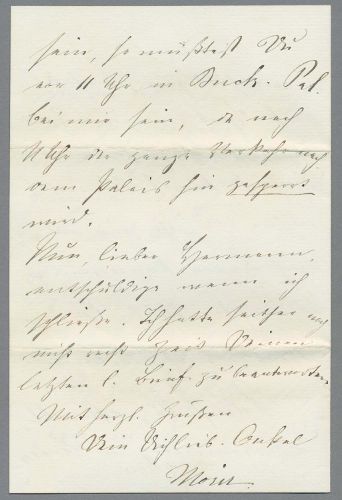 sein, so müßtest Du
vor 11 Uhr in Buck. Pal.
bei mir sein, da nach
11 Uhr der ganze Verkehr nach
dem Palais hin gesperrt
wird.
Nun, lieber Hermann,
entschuldige wenn ich
schließe. Ich hatte seither noch
nicht recht Zeit Deinen
letzten l. Brief zu beantworten.
Mit herzl. Grüßen
Dein Dichlieb. Onkel